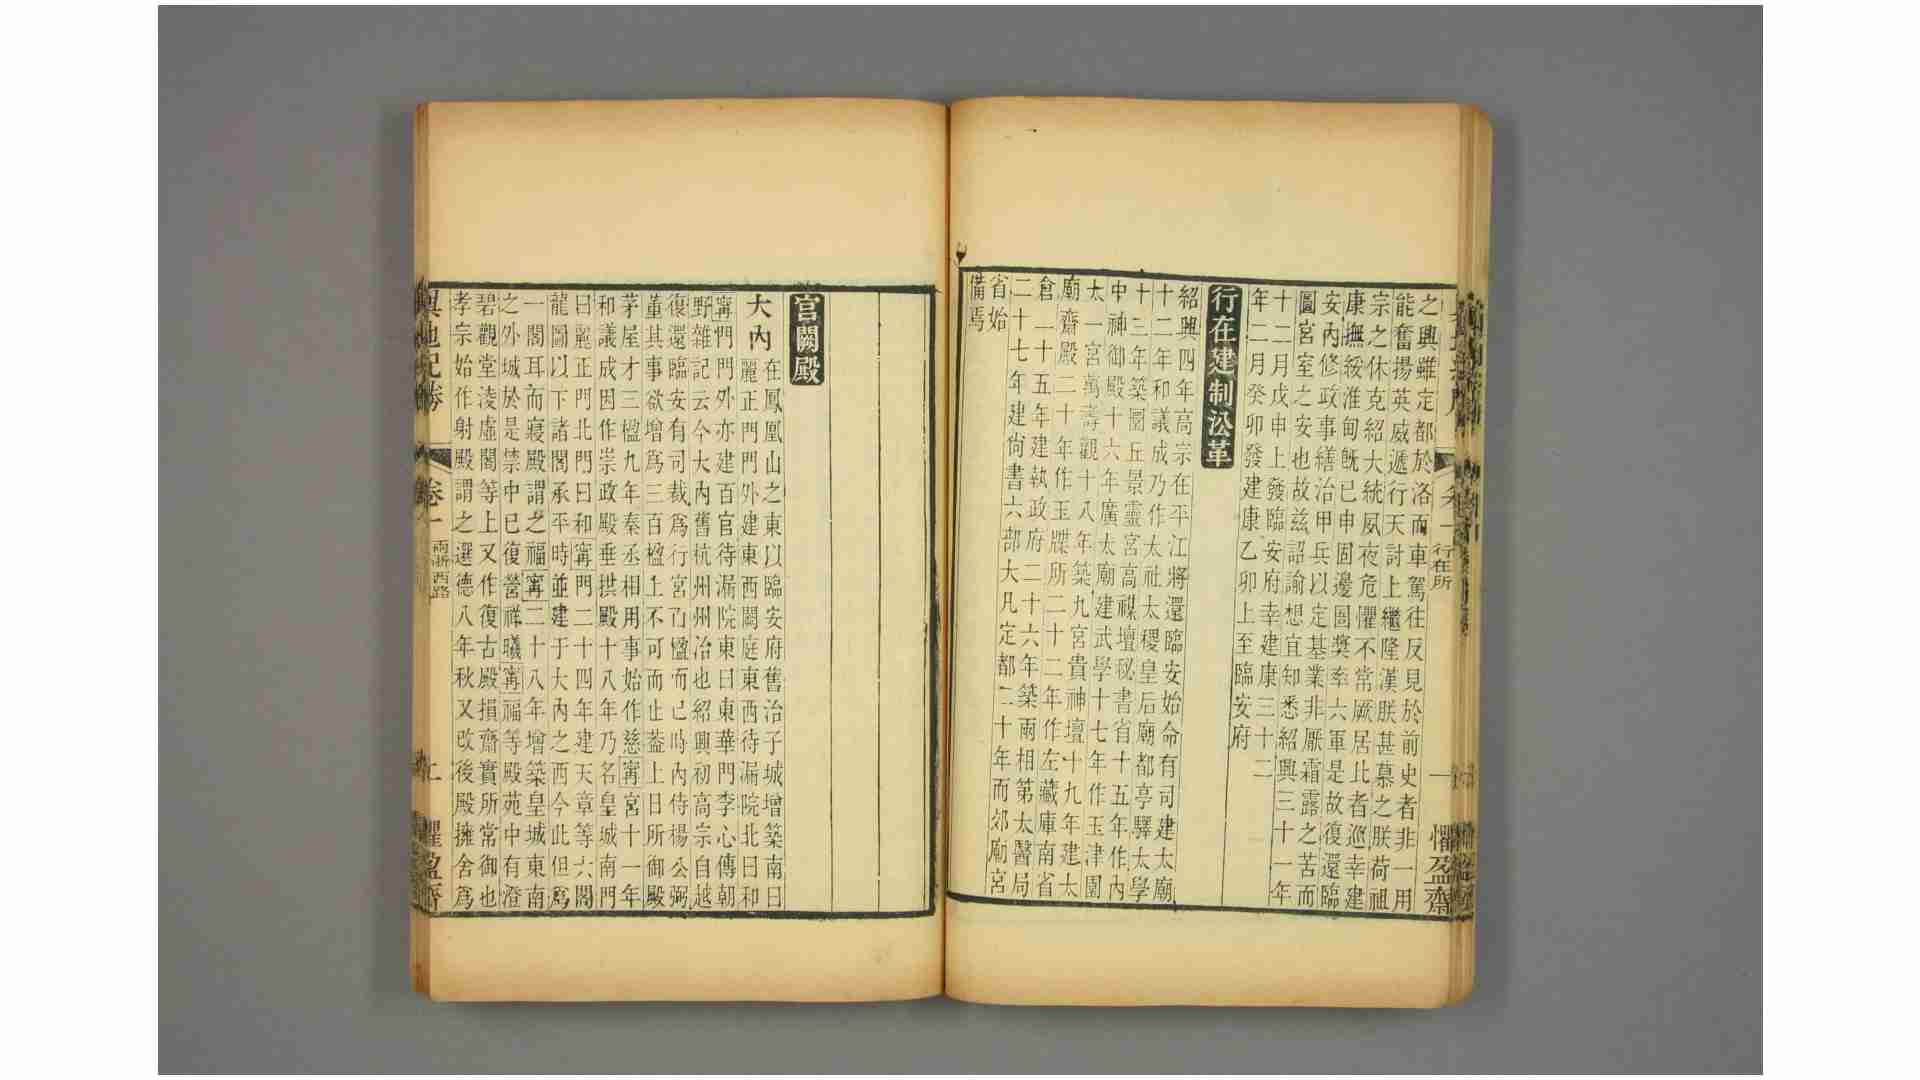 之興雖定都於洛而車駕往反見於前史者非一用
能奮揚英威遞行天討上繼隆漢朕甚慕之朕荷祖
宗之休克紹大統夙夜危懼不常厥居比者巡幸建
康撫綏淮甸既已申固邊圉奬率六軍是故復還臨
安內修政事繕治甲兵以定基業非厭霜露之苦而
圖宮室之安也故兹詔諭想宜知悉紹興三十一年
十二月戊申上發臨安府幸建康三十二
年二月癸卯發建康乙卯上至臨安府
行在建制沿革
紹興四年高宗在平江將還臨安始命有司建太廟
十二年和議成乃作太社太稷皇后廟都亭驛太學
十三年築圜丘景靈宮高禖壇秘書省十五年作內
中神御殿十六年廣太廟建武學十七年作玉津園
太一宮萬壽觀十八年築九宮貴神壇十九年建太
廟齋殿二十年作玉牒所二十二年作左藏庫南省
倉二十五年建執政府二十六年築兩相第太醫局
二十七年建尙書六部大凡定都二十年而郊廟宮
省始
備焉
行在所
一
懼盈齋
宮闕殿
大內
在鳳凰山之東以臨安府舊治子城增築南曰
麗正門門外建東西闕庭東西待漏院北曰和
寗門門外亦建百官待漏院東曰東華門李心傳朝
野雜記云今大內舊杭州州治也紹興初高宗自越
復還臨安有司裁爲行宮百楹而已時內侍楊公弼
董其事欲增爲三百楹上不可而止葢上日所御殿
茅屋才三楹九年秦丞相用事始作慈寗宮十一年
和議成因作崇政殿垂拱殿十八年乃名皇城南門
曰麗正門北門曰和寗門二十四年建天章等六閣
龍圖以下諸閣承平時並建于大內之西今此但爲
一閣耳而寢殿謂之福寗二十八年增築皇城東南
之外城於是禁中已復營祥曦寗福等殿苑中有澄
碧觀堂淩虛閣等上又作復古殿損齋實所常御也
孝宗始作射殿謂之選德八年秋又改後殿擁舍爲
輿地紀勝
卷一
兩浙西路
二
懼盈齋